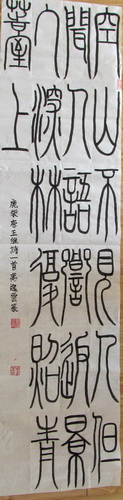 空山不見人但
聞人語響返景
入深林復照青
苔上
鹿柴唐王維詩一首